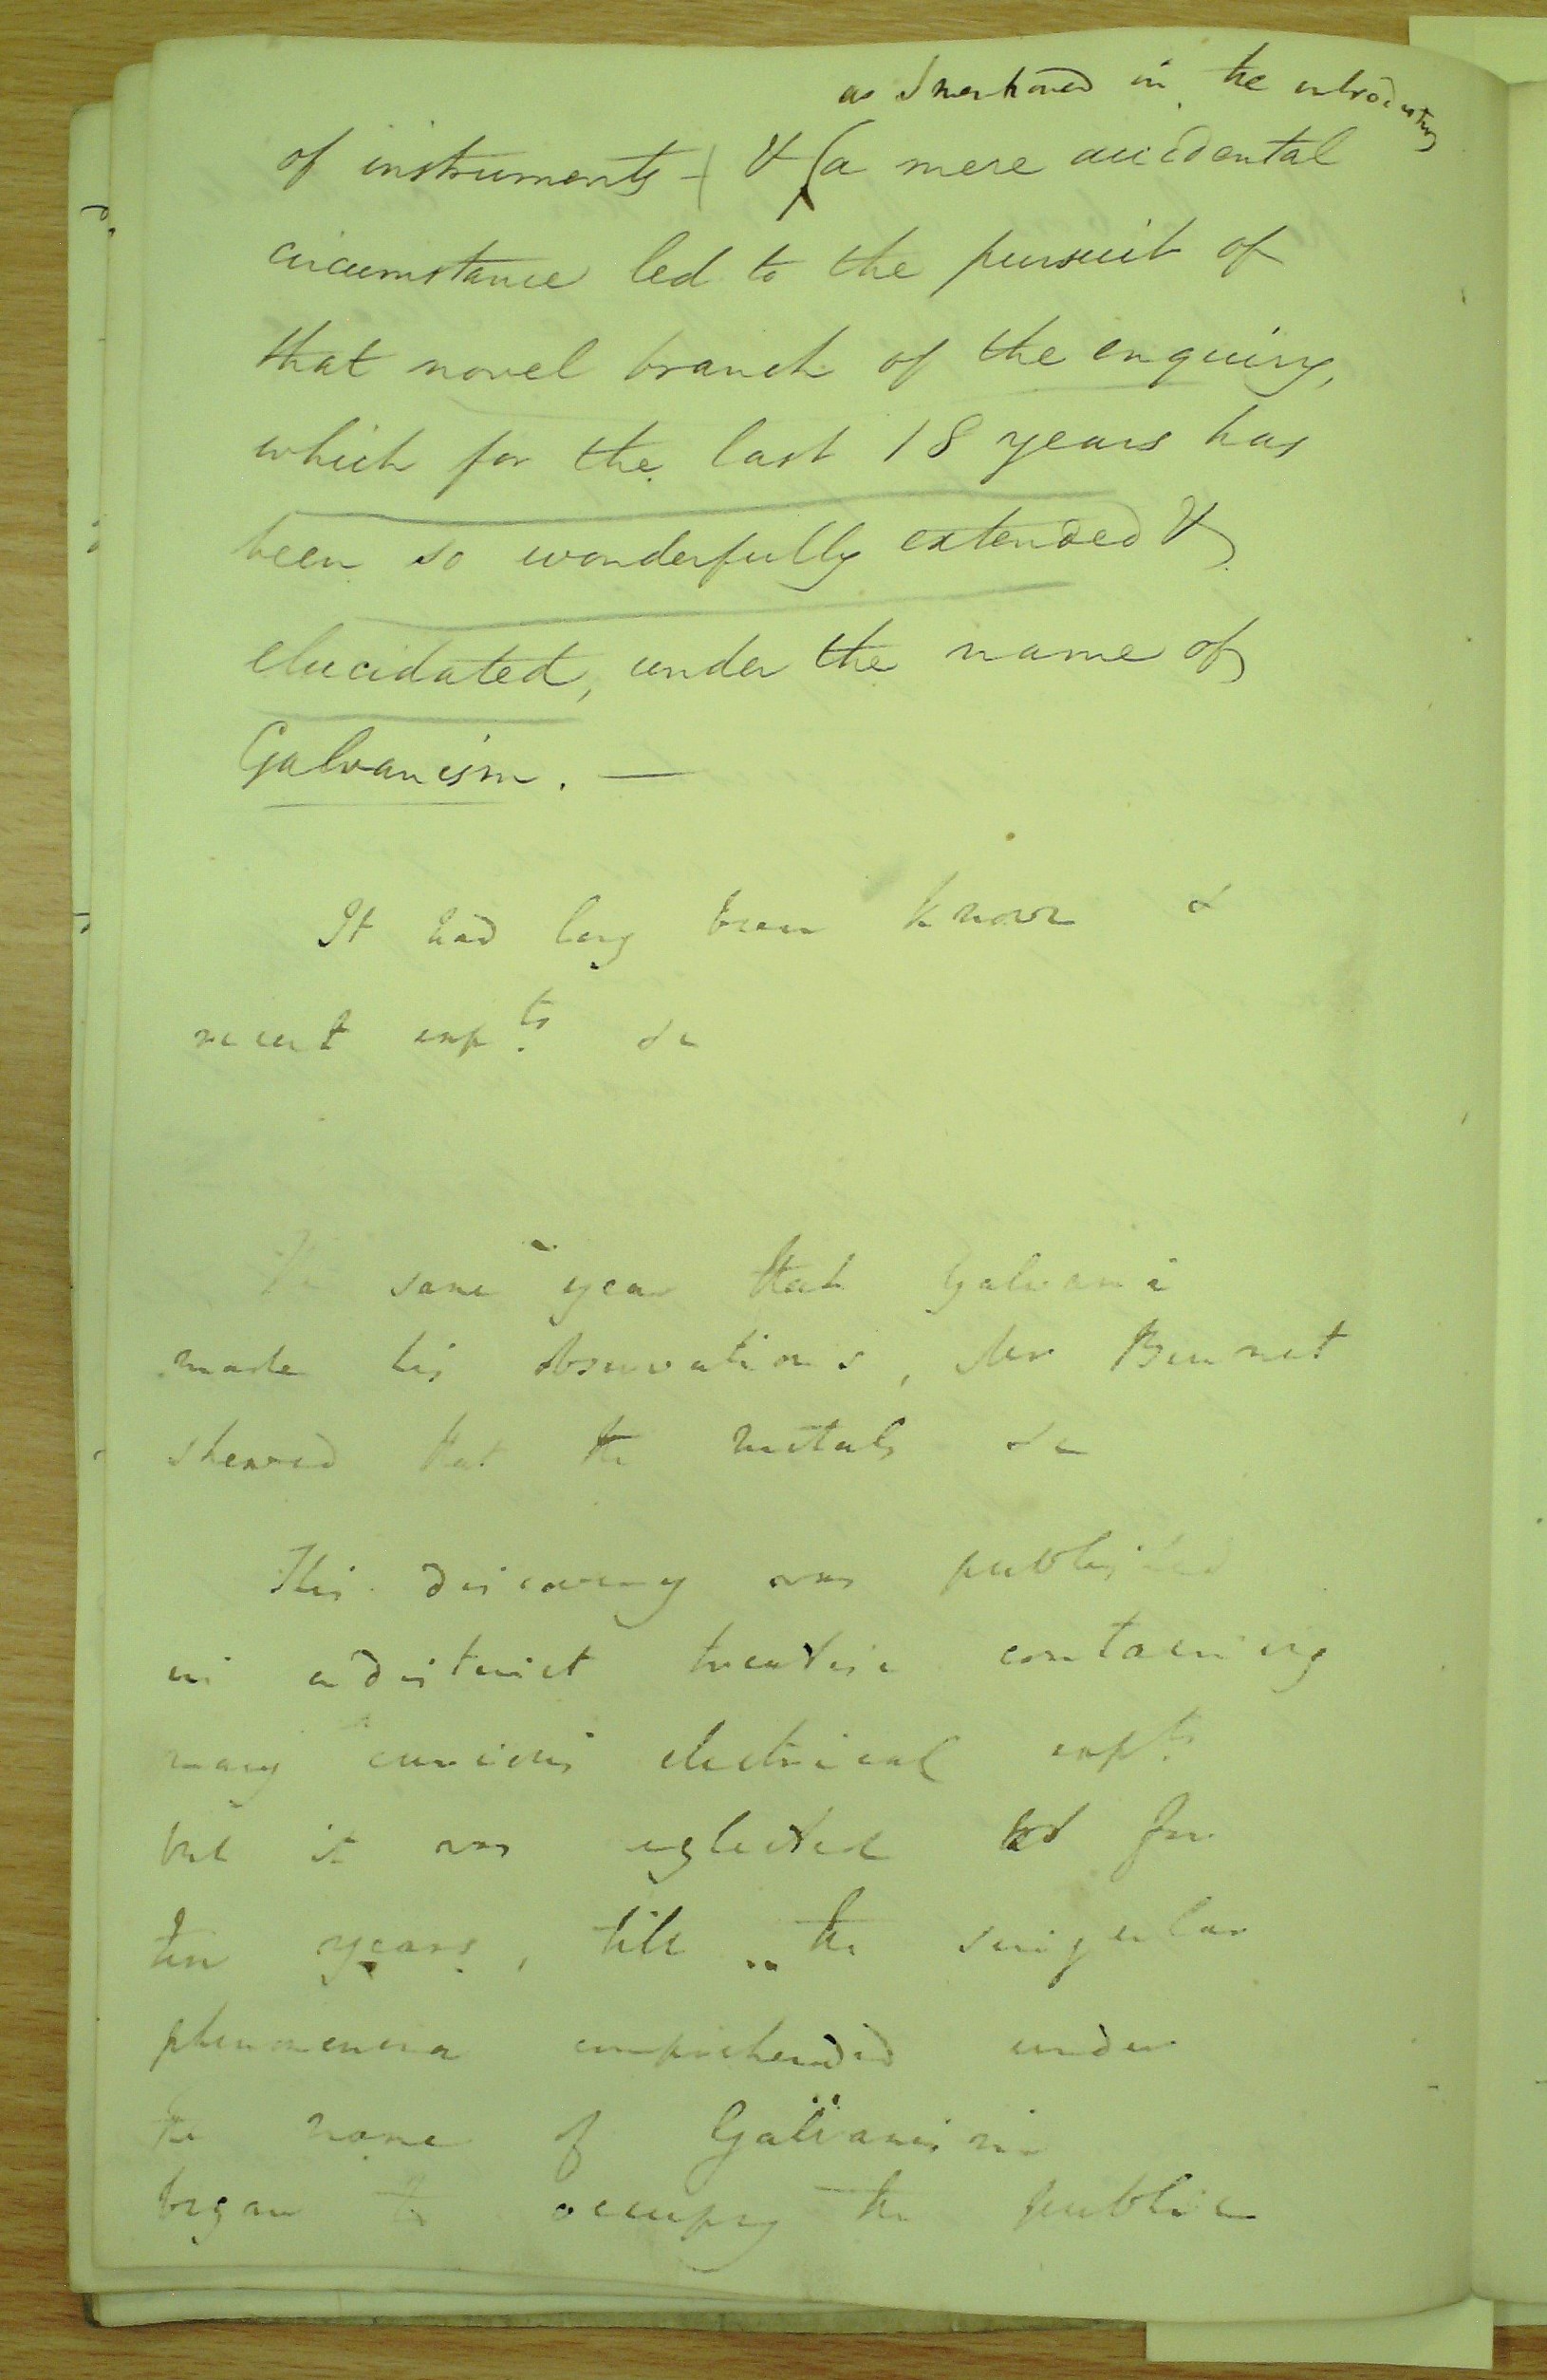 as I mentioned in the introductory
of instruments - & (a mere accidental
circumstance led to the pursuit of
that novel branch of the enquiry,
which for the last 18 years has
been so wonderfully extended &
elucidated, under the name of
Galvanism. —
It had long been known &
recent expts &c
The same year that Galvani
made his observations, Mr Bennet
shewed that the metals &c
This discovery was published
in a distinct treatise containing
many curious electrical expts
but it was neglected for
ten years, till the singular
phenomena comprehended under
the name of Galvanism
began to occupy the public